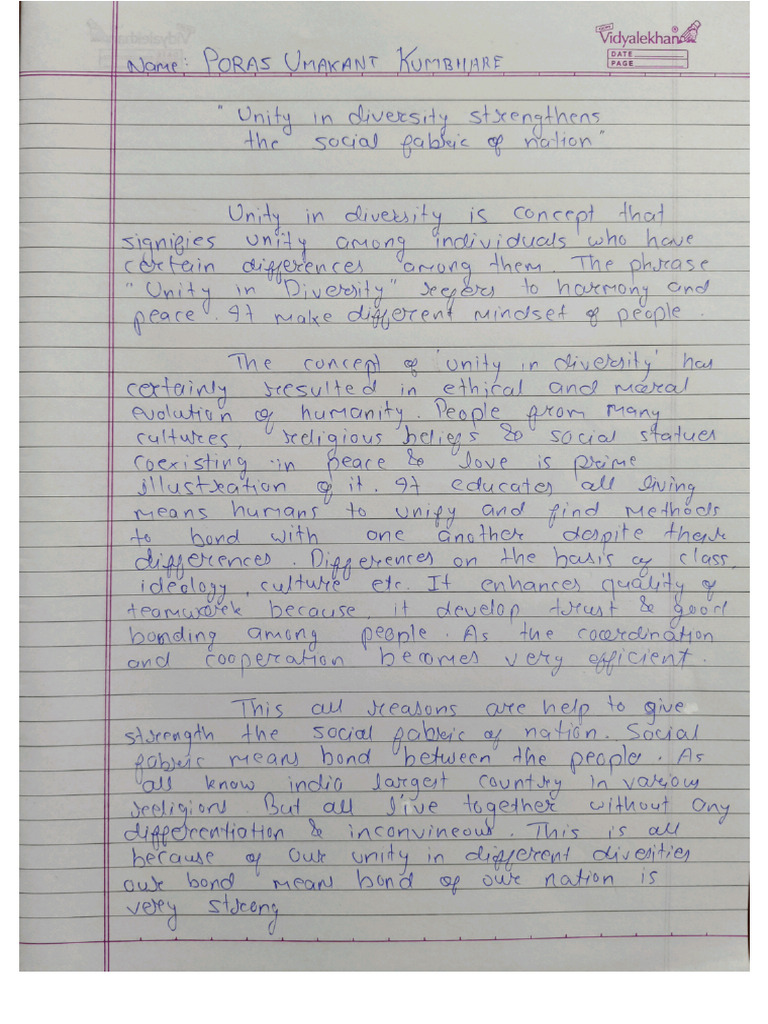 Vidyalekhan
DATE
PAGE
Name: PORAS UMAKANT KUMBHARE
"Unity in diversity strengthens
the social fabric of nation"
Unity in diversity is concept that
signifies unity among individuals who have
certain differences among them. The phrase
"Unity in Diversity" refers to harmony and
peace. It make different mindset of people.
The concept of 'unity in diversity' has
certainly resulted in ethical and moral
evolution of humanity. People from many
cultures, religious beliefs & social statues
coexisting in peace & love is prime
illustration of it. It educates all living
means humans to unify and find methods
to bond with one another despite their
differences. Differences on the basis of class,
ideology, culture etc. It enhances quality of
teamwork because, it develop trust & good
bonding among people. As the coordination
and cooperation becomes very efficient.
This all reasons are help to give
strength the social fabric of nation. Social
fabric means bond between the people. As
all know india largest country in various
religions. But all live together without any
differentiation & inconvineous. This is all
because of our unity in different diverities
our bond means bond of our nation is
very strong